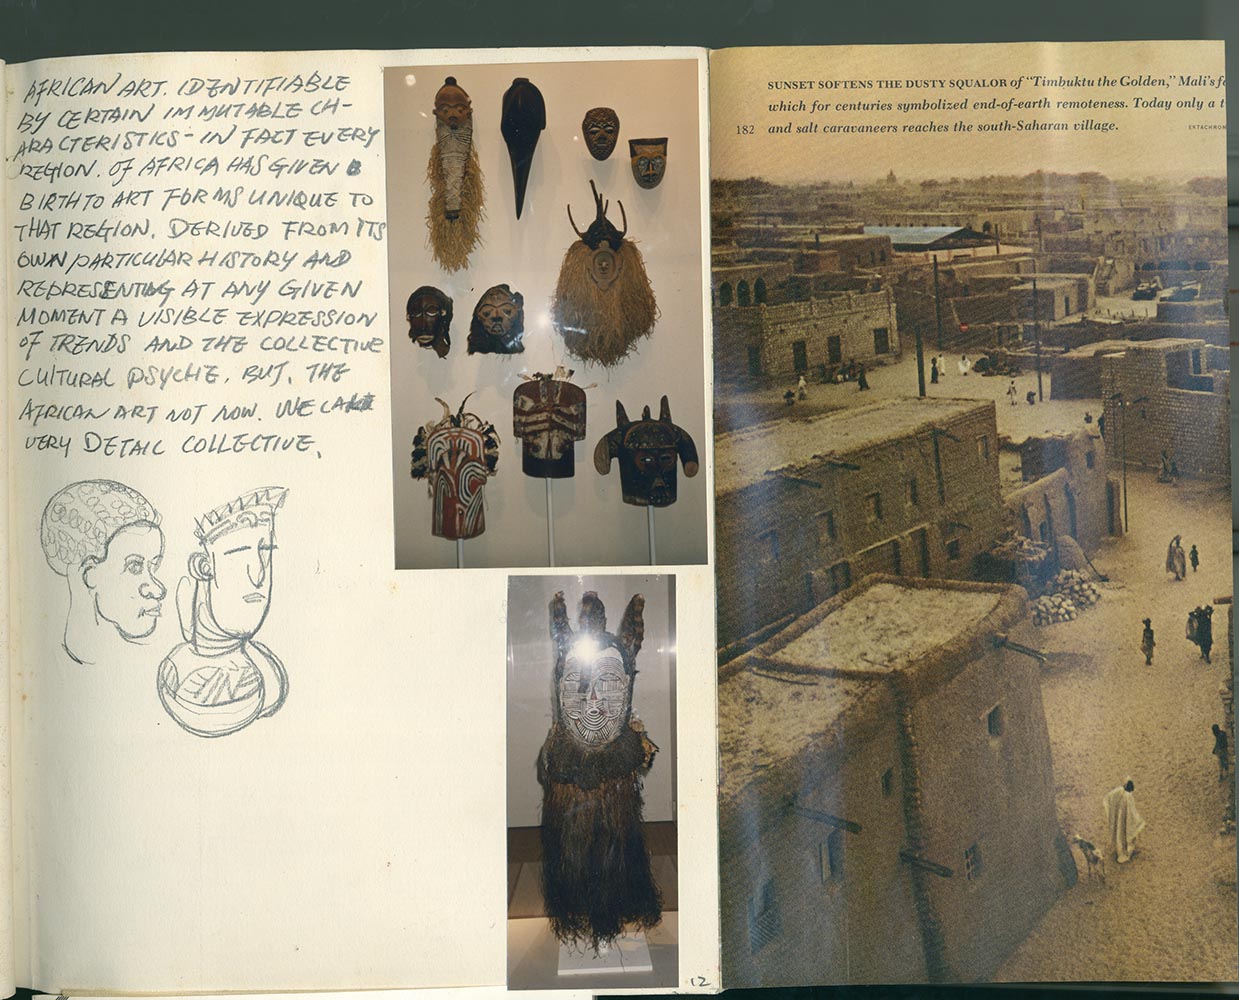 AFRICAN ART. IDENTIFIABLE
BY CERTAIN IMMUTABLE CH-
ARACTERISTICS - IN FACT EVERY
REGION. OF AFRICA HAS GIVEN
BIRTH TO ART FORMS UNIQUE TO
THAT REGION. DERIVED FROM ITS
OWN PARTICULAR HISTORY AND
REPRESENTING AT ANY GIVEN
MOMENT A VISIBLE EXPRESSION
OF TRENDS AND THE COLLECTIVE
CULTURAL PSYCHE. BUT. THE
AFRICAN ART NOT NOW. WE
VERY DETAIL COLLECTIVE.
12
SUNSET SOFTENS THE DUSTY SQUALOR of "Timbuktu the Golden," Mali's
which for centuries symbolized end-of-earth remoteness. Today only a
182 and salt caravaneers reaches the south-Saharan village.
EKTACHROM